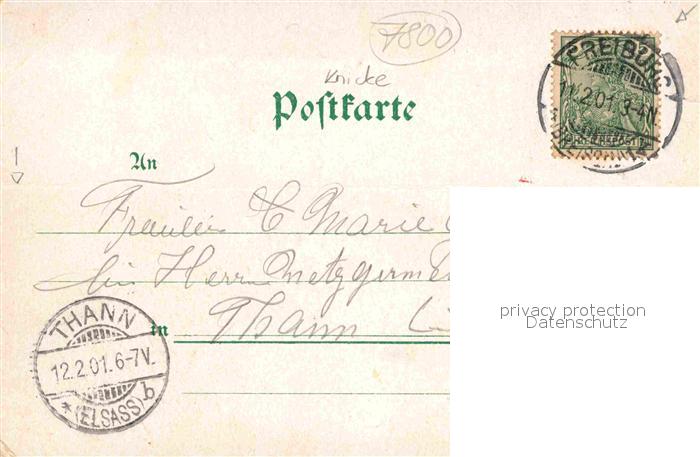 7800
Knicke
Postkarte
FREIBURG
11.2.01.3-4N.
An
Fräulein C Marie
bei Herrn Metzgerme
in Thann
privacy protection
Datenschutz
THANN
12.2.01.6-7V.
*(ELSASS) b